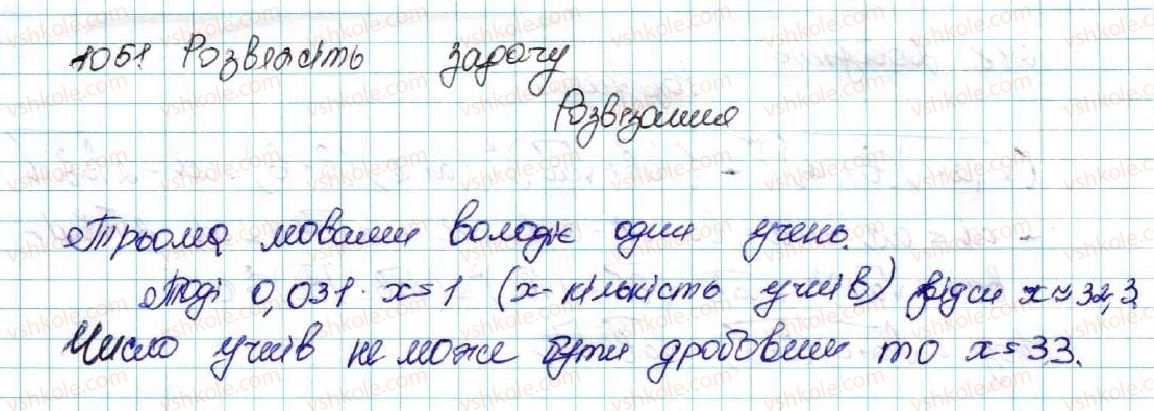 1051 Розвяжіть задачу
Розвязання
Трьома мовами володіє один учень.
Тоді 0,031·x=1 (x-кількість учнів) відси x≈32,3
Число учнів не може бути дробовим то x=33.